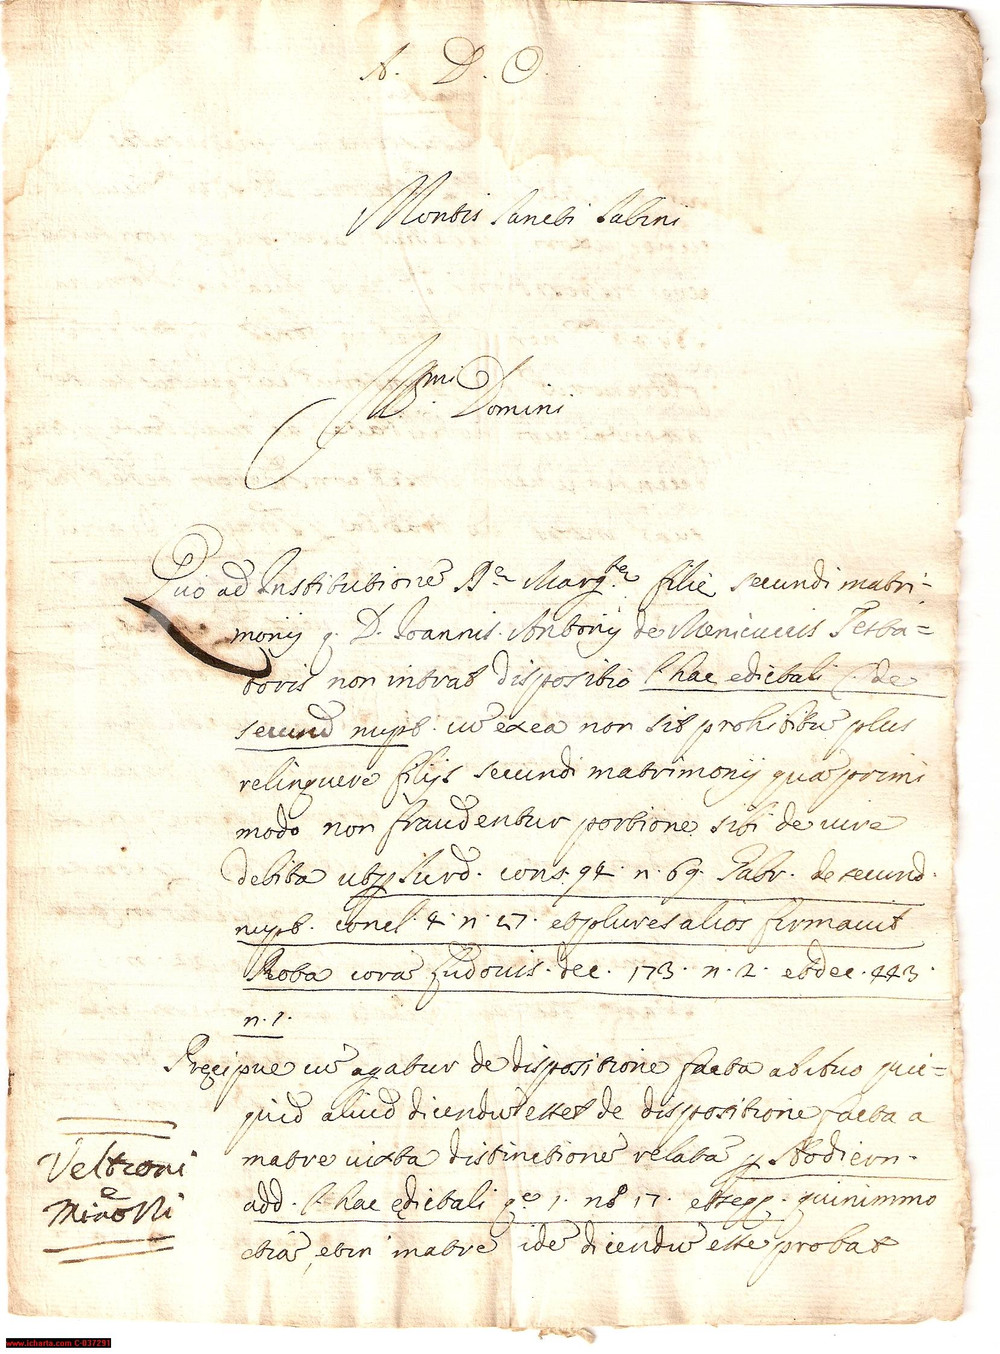 A. D. O.
Montis Sancti Sabini
Ill.mi Domini
Quo ad Institutione D.e Marg.te filie secundi matri-
monij q. D. Ioannis Antonij de Menicuccis Testa=
toris non intrat dispositio l. hac edictali C. de
secund nupt. cu exea non sit prohibitu plus
relinquere filijs secundi matrimonij qua primi
modo non fraudentur portione sibi de iure
debita ut p Surd. cons. 94. n. 69. Gabr. de secund.
nupt. concl. 4. n. 27. et plures alios firmavit
Rota cora Ludovis. dec. 173. n. 2. et dec. 443.
n. 1.
Precipue cu agatur de dispositione facta ab ituo quic=
quid aliud dicendu esset de dispositione facta a
matre iuxta distinctione relata p Hodiern.
add. l. hac edictali q.e 1. n.o 17. et seqq. quinimmo
etia, et in matre ide dicendu esse probat
Veltroni
e
Minolli
www.icharta.com C-037291